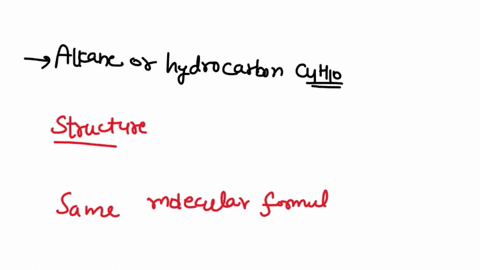 → Alkane or hydrocarbon C4H10
Structure
Same molecular formul